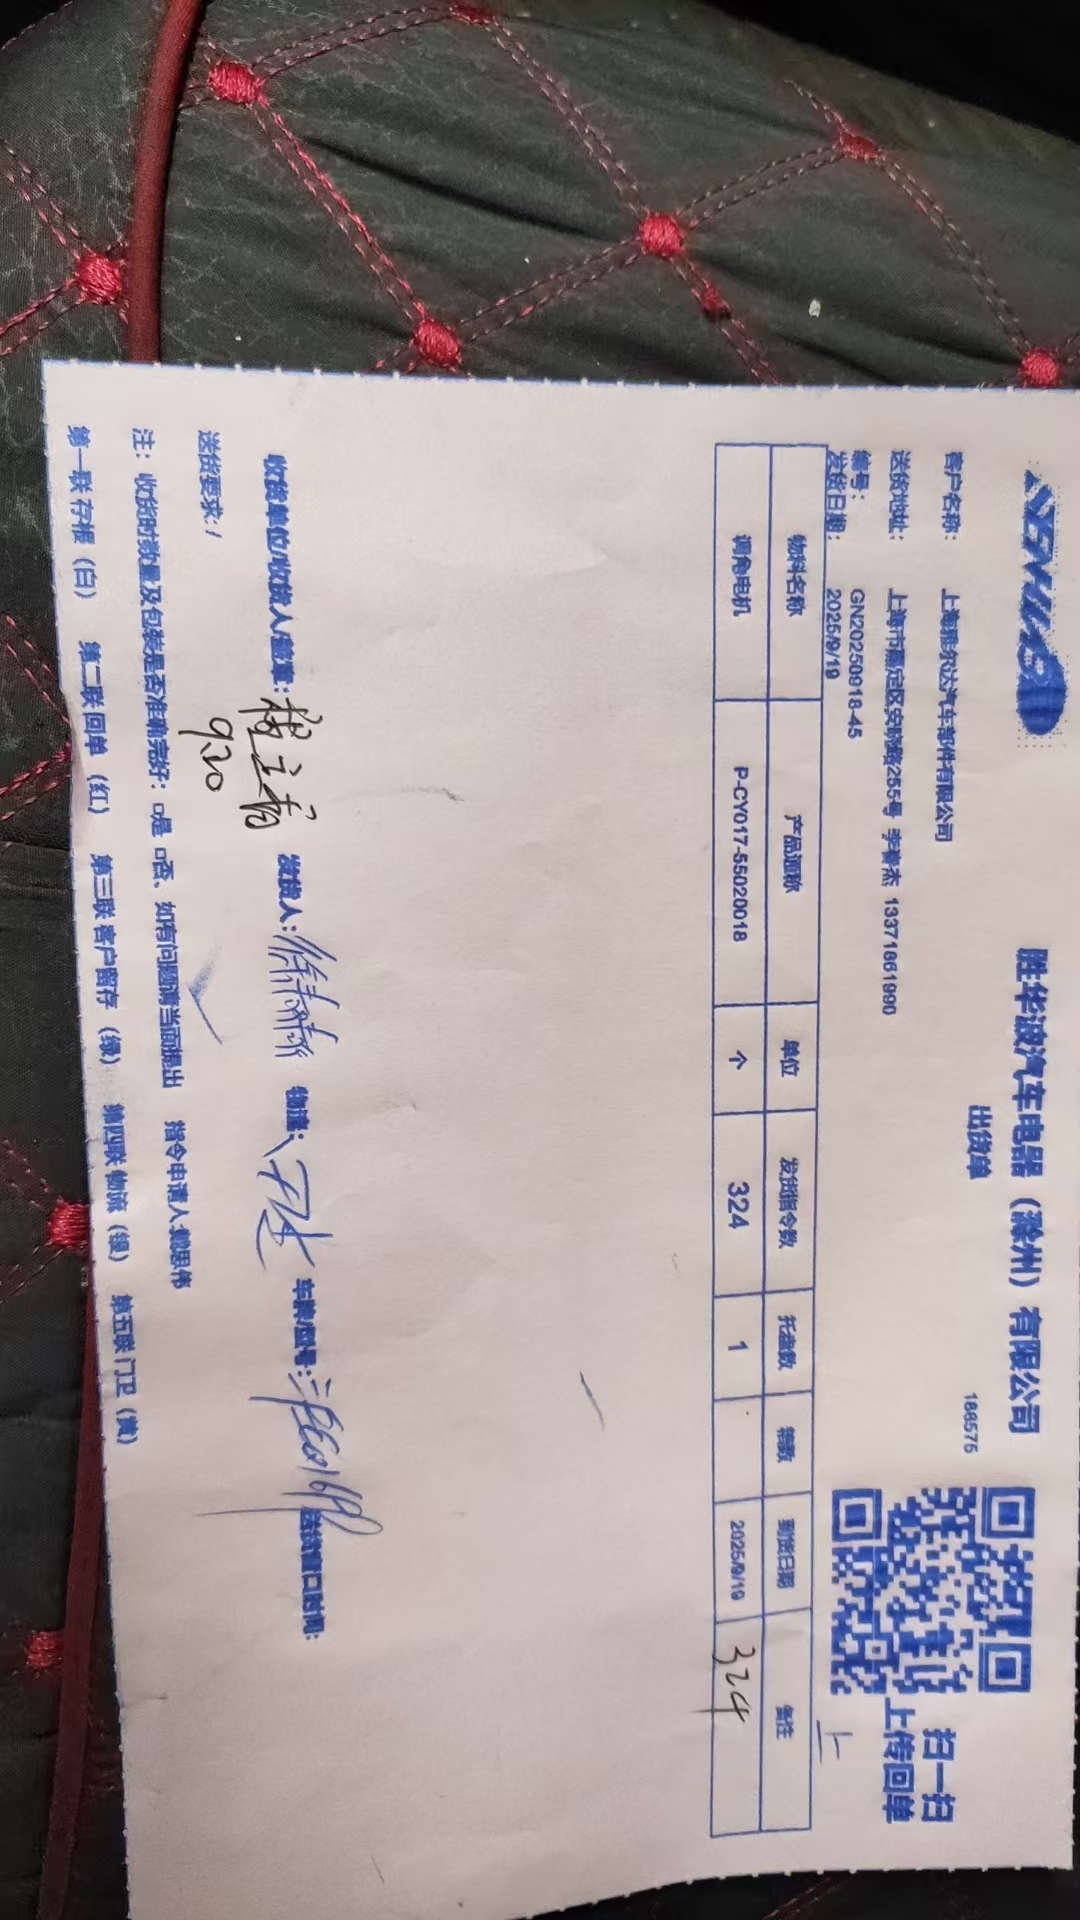 SHB
胜华波汽车电器（滁州）有限公司
出货单
188575
扫一扫
上传回单
上
客户名称： 上海雅尔达汽车部件有限公司
送货地址： 上海市嘉定区安晓路255号 李春杰 13371861990
编号： GN20250918-45
发货日期： 2025/9/19
物料名称 产品通称 单位 发货指令数 托盘数 箱数 到货日期 备注
调角电机 P-CY017-55020018 个 324 1 2025/9/19 324
收货单位/收货人/盖章： 发货人： 物流： 车牌/柜号： 送货窗口时间：
9.20
送货要求: /
注： 收货时数量及包装是否准确完好： □是 □否、如有问题请当面提出 指令申请人:
第一联 存根（白） 第二联 回单（红） 第三联 客户留存（绿） 第四联 物流（银） 第五联 门卫（黄）